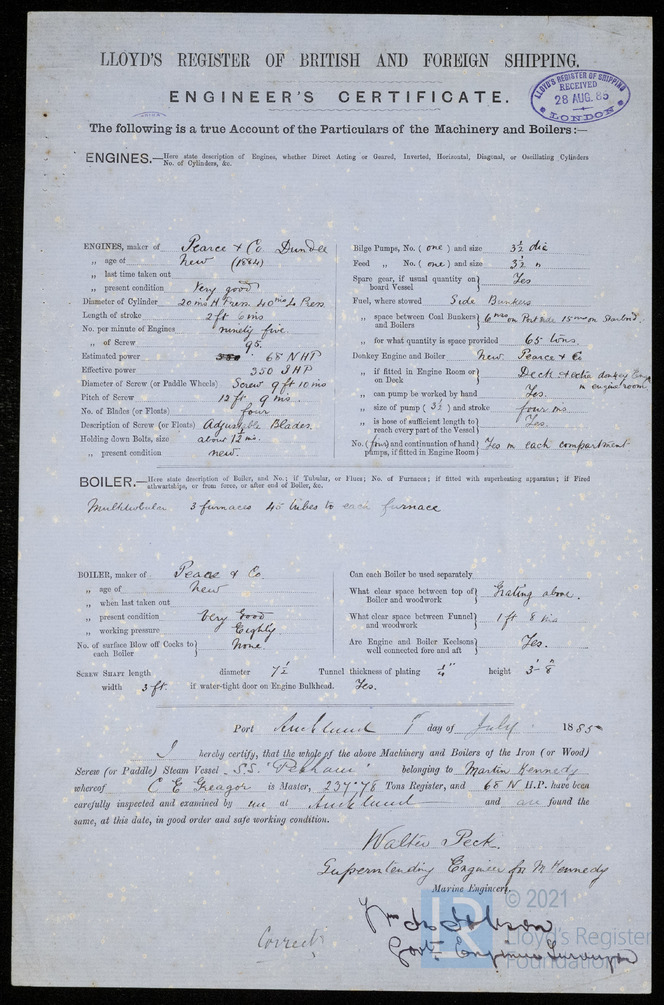 LLOYD'S REGISTER OF BRITISH AND FOREIGN SHIPPING.
LLOYD'S REGISTER OF SHIPPING
RECEIVED
28 AUG. 85
LONDON
ENGINEER'S CERTIFICATE.
The following is a true Account of the Particulars of the Machinery and Boilers:—
ENGINES.—Here state description of Engines, whether Direct Acting or Geared, Inverted, Horizontal, Diagonal, or Oscillating Cylinders
No. of Cylinders, &c.
ENGINES, maker of Pearce & Co Dundee
„ age of New (1884)
„ last time taken out
„ present condition Very good
Diameter of Cylinder 20 ins H Press. 40 ins L Press
Length of stroke 2 ft 6 ins
No. per minute of Engines ninety five
„ of Screw 95.
Estimated power 68 NHP
Effective power 350 IHP
Diameter of Screw (or Paddle Wheels) Screw 9 ft 10 ins
Pitch of Screw 12 ft 9 ins.
No. of Blades (or Floats) four
Description of Screw (or Floats) Adjustable Blades
Holding down Bolts, size about 1½ ins.
„ present condition new.
Bilge Pumps, No. (one) and size 3½ dia
Feed „ No. (one) and size 3½ "
Spare gear, if usual quantity on board Vessel} Yes
Fuel, where stowed Side Bunkers
„ space between Coal Bunkers and Boilers} 6 ins on Port side 15 ins on Starbrd.
„ for what quantity is space provided 65 tons.
Donkey Engine and Boiler New Pearce & Co
„ if fitted in Engine Room or on Deck} Deck donkey in engine room
„ can pump be worked by hand Yes.
„ size of pump (3½) and stroke four ins.
„ is hose of sufficient length to reach every part of the Vessel} Yes.
No. (four) and continuation of hand pumps, if fitted in Engine Room} Yes in each compartment
BOILER.—Here state description of Boiler, and No.; if Tubular, or Flues; No. of Furnaces; if fitted with superheating apparatus; if Fired
athwartships, or from force, or after end of Boiler, &c.
Multitubular 3 furnaces 45 tubes to each furnace
BOILER, maker of Pearce & Co
„ age of New
„ when last taken out
„ present condition Very Good
„ working pressure Eighty
No. of surface Blow off Cocks to each Boiler} None
Can each Boiler be used separately
What clear space between top of Boiler and woodwork} Grating above.
What clear space between Funnel and woodwork} 1 ft 8 ins
Are Engine and Boiler Keelsons well connected fore and aft} Yes.
SCREW SHAFT length diameter 7½ Tunnel thickness of plating ¼" height 3'-8"
width 3 ft. if water-tight door on Engine Bulkhead. Yes.
Port Auckland 1 day of July 1885
I hereby certify, that the whole of the above Machinery and Boilers of the Iron (or Wood)
Screw (or Paddle) Steam Vessel S.S. "Pelham" belonging to Martin Kennedy
whereof C E Greagor is Master, 237·78 Tons Register, and 68 N H.P. have been
carefully inspected and examined by me at Auckland and are found the
same, at this date, in good order and safe working condition.
Walter Peck.
Superintending Engineer for M Kennedy
Marine Engineers.
Govt Engineer Surveyor
Correct
© 2021
LR
Lloyd's Register
Foundation